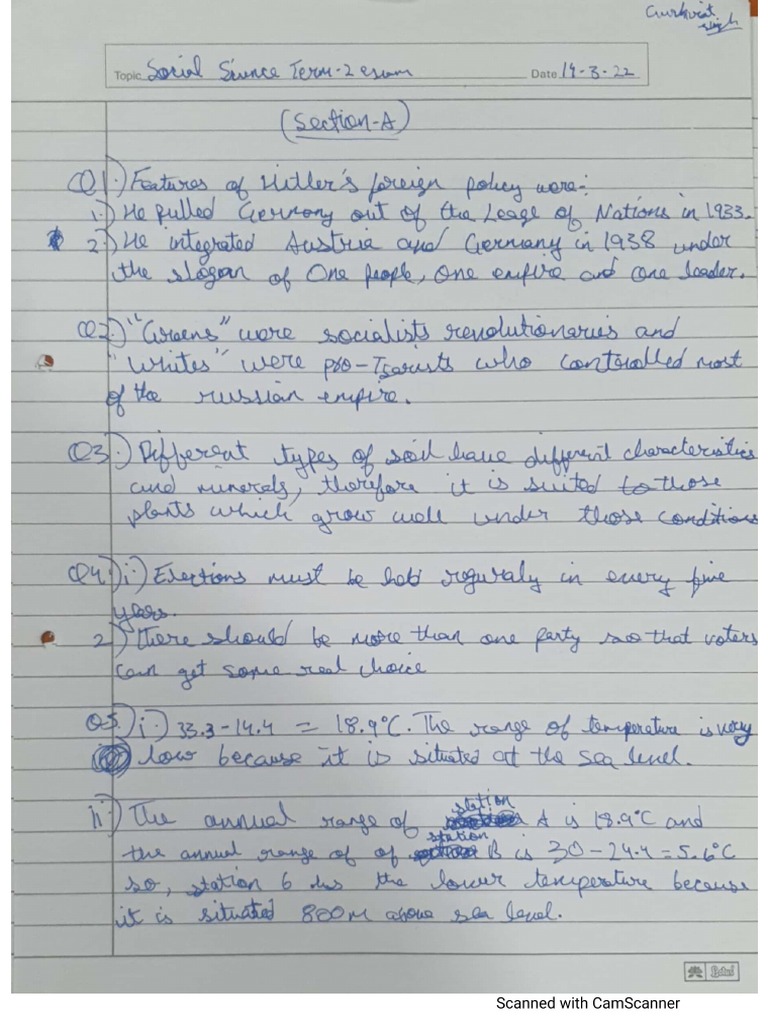 Gurkirat
Singh
Topic Social Science Term-2 exam Date 14-3-22
(Section-A)
Q1.) Features of Hitler's foreign policy were:-
1.) He pulled Germony out of the Leage of Nations in 1933.
2.) He integrated Austria and Germany in 1938 under
the slogan of One people, One empire and one leader.
Q2.) "Greens" were socialists revolutionaries and
"Whites" were pro-Tsarists who controlled most
of the russian empire.
Q3.) Different types of soil have different characteristics
and minerals, therefore it is suited to those
plants which grow well under those conditions
Q4.) i.) Elections must be held reguraly in every five
years.
2.) There should be more than one party so that voters
can get some real choice
Q5.) i.) 33.3-14.4 = 18.9°C. The range of temperature is very
low because it is situated at the sea level.
ii.) The annual range of station A is 18.9°C and
the annual range of of station B is 30-24.4=5.6°C
so, station 6 has the lower temperature because
it is situated 800m above sea level.
Scanned with CamScanner